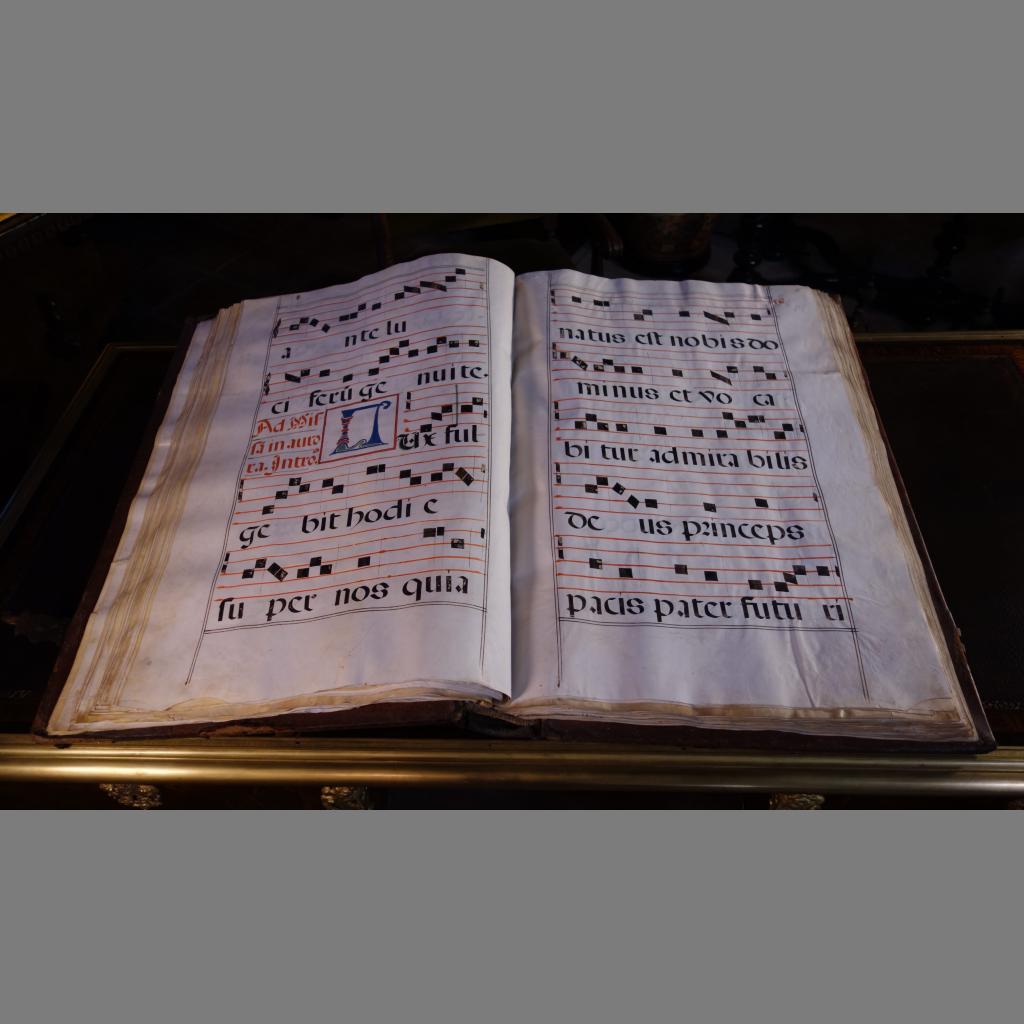 a nte lu
ci ferū ge nui te.
Ad Miſ
ſa in auro
ra. Introˢ
LUx ful
ge bit hodi e
ſu per nos quia
natus eſt nobis do
minus et vo ca
bi tur admira bilis
de us princeps
pacis pater futu ri